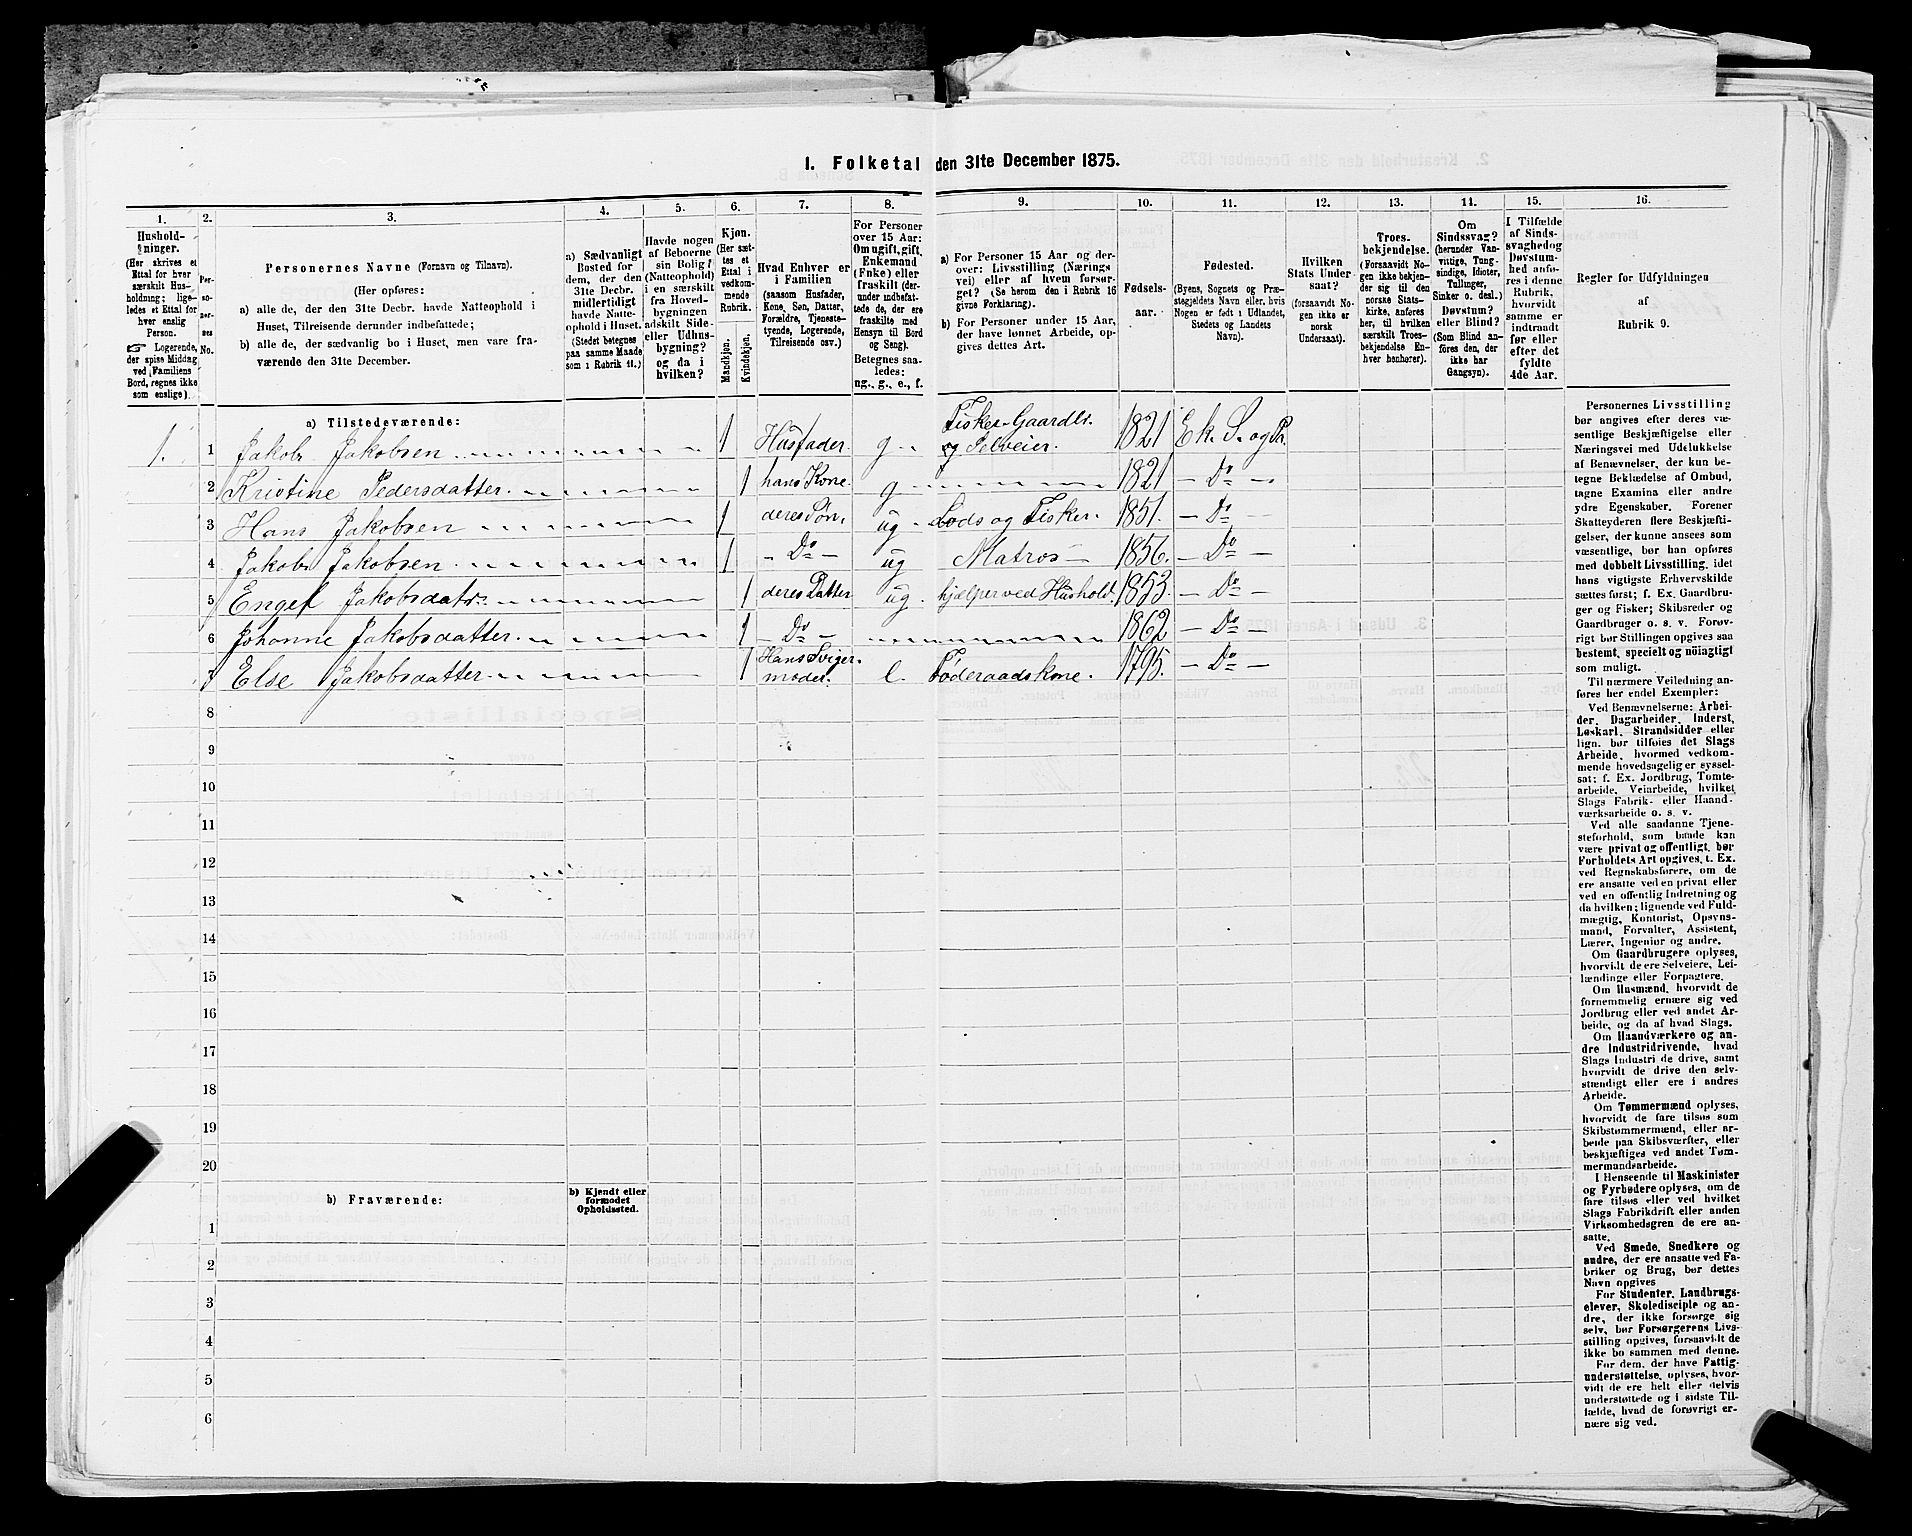 1. Folketal den 31te December 1875.
1. 2. 3. 4. 5. 6. 7. 8. 9. 10. 11. 12. 13. 14. 15. 16.
Hushold-
ninger.
(Her skrives et
Ettal for hver
særskilt Hus-
holdning; lige-
ledes et Ettal for
hver enslig
Person.
☞ Logerende,
der spise Middag
ved Familiens
Bord, regnes ikke
som enslige).
Per-
so-
ner-
nes
No.
Personernes Navne (Fornavn og Tilnavn).
(Her opføres:
a) alle de, der den 31te Decbr. havde Natteophold i
Huset, Tilreisende derunder indbefattede;
b) alle de, der sædvanlig bo i Huset, men vare fra-
værende den 31te December.
a) Sædvanligt
Bosted for
dem, der den
31te Decbr.
midlertidigt
havde Natte-
ophold i Huset.
(Stedet betegnes
paa samme Maade
som i Rubrik 11.)
Havde nogen
af Beboerne
sin Bolig
(Natteophold)
i en særskilt
fra Hoved-
bygningen
adskilt Side-
eller Udhus-
bygning?
og da i
hvilken?
Kjøn.
(Her sæt-
tes et
Ettal i
vedkom-
mende
Rubrik.
Mandkjøn.
Kvindekjøn.
Hvad Enhver er
i Familien
(saasom Husfader,
Kone, Søn, Datter,
Forældre, Tjeneste-
tyende, Logerende,
Tilreisende osv.)
For Personer
over 15 Aar:
Om ugift, gift,
Enkemand
(Enke) eller
fraskilt (der-
under indbefat-
tede de, der ere
fraskilte med
Hensyn til Bord
og Seng).
Betegnes saa-
ledes:
ug., g., e., f.
a) For Personer 15 Aar og der-
over: Livsstilling (Nærings
vei) eller af hvem forsør-
get? (Se herom den i Rubrik 16
givne Forklaring).
b) For Personer under 15 Aar,
der have lønnet Arbeide, op-
gives dettes Art.
Fødsels-
aar.
Fødested.
(Byens, Sognets og Præ-
stegjeldets Navn eller, hvis
Nogen er født i Udlandet,
Stedets og Landets
Navn).
Hvilken
Stats Under-
saat?
(forsaavidt No-
gen ikke er
norsk
Undersaat).
Troes-
bekjendelse.
(Forsaavidt No-
gen ikke bekjen-
der sig til den
norske Stats-
kirke, anføres
her, til hvilken
særskilt Troes-
bekjendelse En-
hver henhører).
Om
Sindssvag?
(herunder Van-
vittige, Tung-
sindige, Idioter,
Tullinger,
Sinker o. desl.)
Døvstum?
eller Blind?
(Som Blind an-
føres den, der
ikke har
Gangsyn).
I Tilfælde
af Sinds-
svaghed og
Døvstum-
hed anfø-
res i denne
Rubrik,
hvorvidt
samme er
indtraadt
før eller
efter det
fyldte
4de Aar.
Regler for Udfyldningen
af
Rubrik 9.
a) Tilstedeværende:
1. 1 Jakob Jakobsen 1 Husfader g Fisker Gaardbr. og Selveier. 1821 Ek. S. og Pr.
2 Kristine Pedersdatter 1 hans Kone g 1821 Do
3 Hans Jakobsen 1 deres Søn, ug Lods og Fisker. 1851. Do
4 Jakob Jakobsen 1 Do ug Matros 1856. Do
5 Engel Jakobsdatr. 1 deres Datter ug hjælper ved Hushold. 1853. Do
6 Johanne Jakobsdatter 1 Do 1862 Do
7 Else Jakobsdatter 1 Hans Sviger moder. e. Föderaadskone. 1795. Do
8
9
10
11
12
13
14
15
16
17
18
19
20
b) Fraværende:
b) Kjendt eller
formodet
Opholdssted.
1
2
3
4
5
6
Personernes Livsstilling
bør angives efter deres væ-
sentlige Beskjæftigelse eller
Næringsvei med Udelukkelse
af Benævnelser, der kun be-
tegne Beklædelse af Ombud,
tagne Examina eller andre
ydre Egenskaber. Forener
Skatteyderen flere Beskjæfti-
gelser, der kunne ansees som
væsentlige, bør han opføres
med dobbelt Livsstilling, idet
hans vigtigste Erhvervskilde
sættes først; f. Ex. Gaardbru-
ger og Fisker; Skibsreder og
Gaardbruger o. s. v. Forøv-
rigt bør Stillingen opgives saa
bestemt, specielt og nöiagtigt
som muligt.
Til nærmere Veiledning an-
føres her endel Exempler:
Ved Benævnelserne: Arbei-
der, Dagarbeider, Inderst,
Løskarl, Strandsidder eller
lign. bør tilføies det Slags
Arbeide, hvormed vedkom-
mende hovedsagelig er syssel-
sat; f. Ex. Jordbrug, Tomte-
arbeide, Veiarbeide, hvilket
Slags Fabrik- eller Haand-
værksarbeide o. s. v.
Ved alle saadanne Tjene-
steforhold, som baade kan
være privat og offentligt, bør
Forholdets Art opgives, t. Ex.
ved Regnskabsførere, om de
ere ansatte ved en privat eller
ved en offentlig Indretning og
da hvilken; lignende ved Fuld-
mægtig, Kontorist, Opsyns-
mand, Forvalter, Assistent,
Lærer, Ingeniør og andre.
Om Gaardbrugere oplyses,
hvorvidt de ere Selveiere, Lei-
lændinge eller Forpagtere.
Om Husmænd, hvorvidt de
fornemmelig ernære sig ved
Jordbrug eller ved andet Ar-
beide, og da af hvad Slags.
Om Haandværkere og an-
dre Industridrivende, hvad
Slags Industri de drive, samt
hvorvidt de drive den selv-
stændigt eller ere i andres
Arbeide.
Om Tømmermænd oplyses,
hvorvidt de fare tilsøs som
Skibstømmermænd, eller ar-
beide paa Skibsværfter, eller
beskjæftiges ved andet Tøm-
mermandsarbeide.
I Henseende til Maskinister
og Fyrbødere oplyses, om de
fare tilsøs eller ved hvilket
Slags Fabrikdrift eller anden
Virksomhedsgren de ere an-
satte.
Ved Smede, Snedkere og
andre, der ere ansatte ved Fa-
briker og Brug, bør dettes
Navn opgives
For Studenter, Landbrugs-
elever, Skoledisciple og an-
dre, der ikke forsørge sig
selv, bør Forsørgerens Livs-
stilling opgives, forsaavidt de
ikke bo sammen med denne.
For dem, der have Fattig-
understøttelse, oplyses, hvor-
vidt de ere helt eller delvis
understøttede og i sidste Til-
fælde, hvad de forøvrigt er-
nære sig ved.